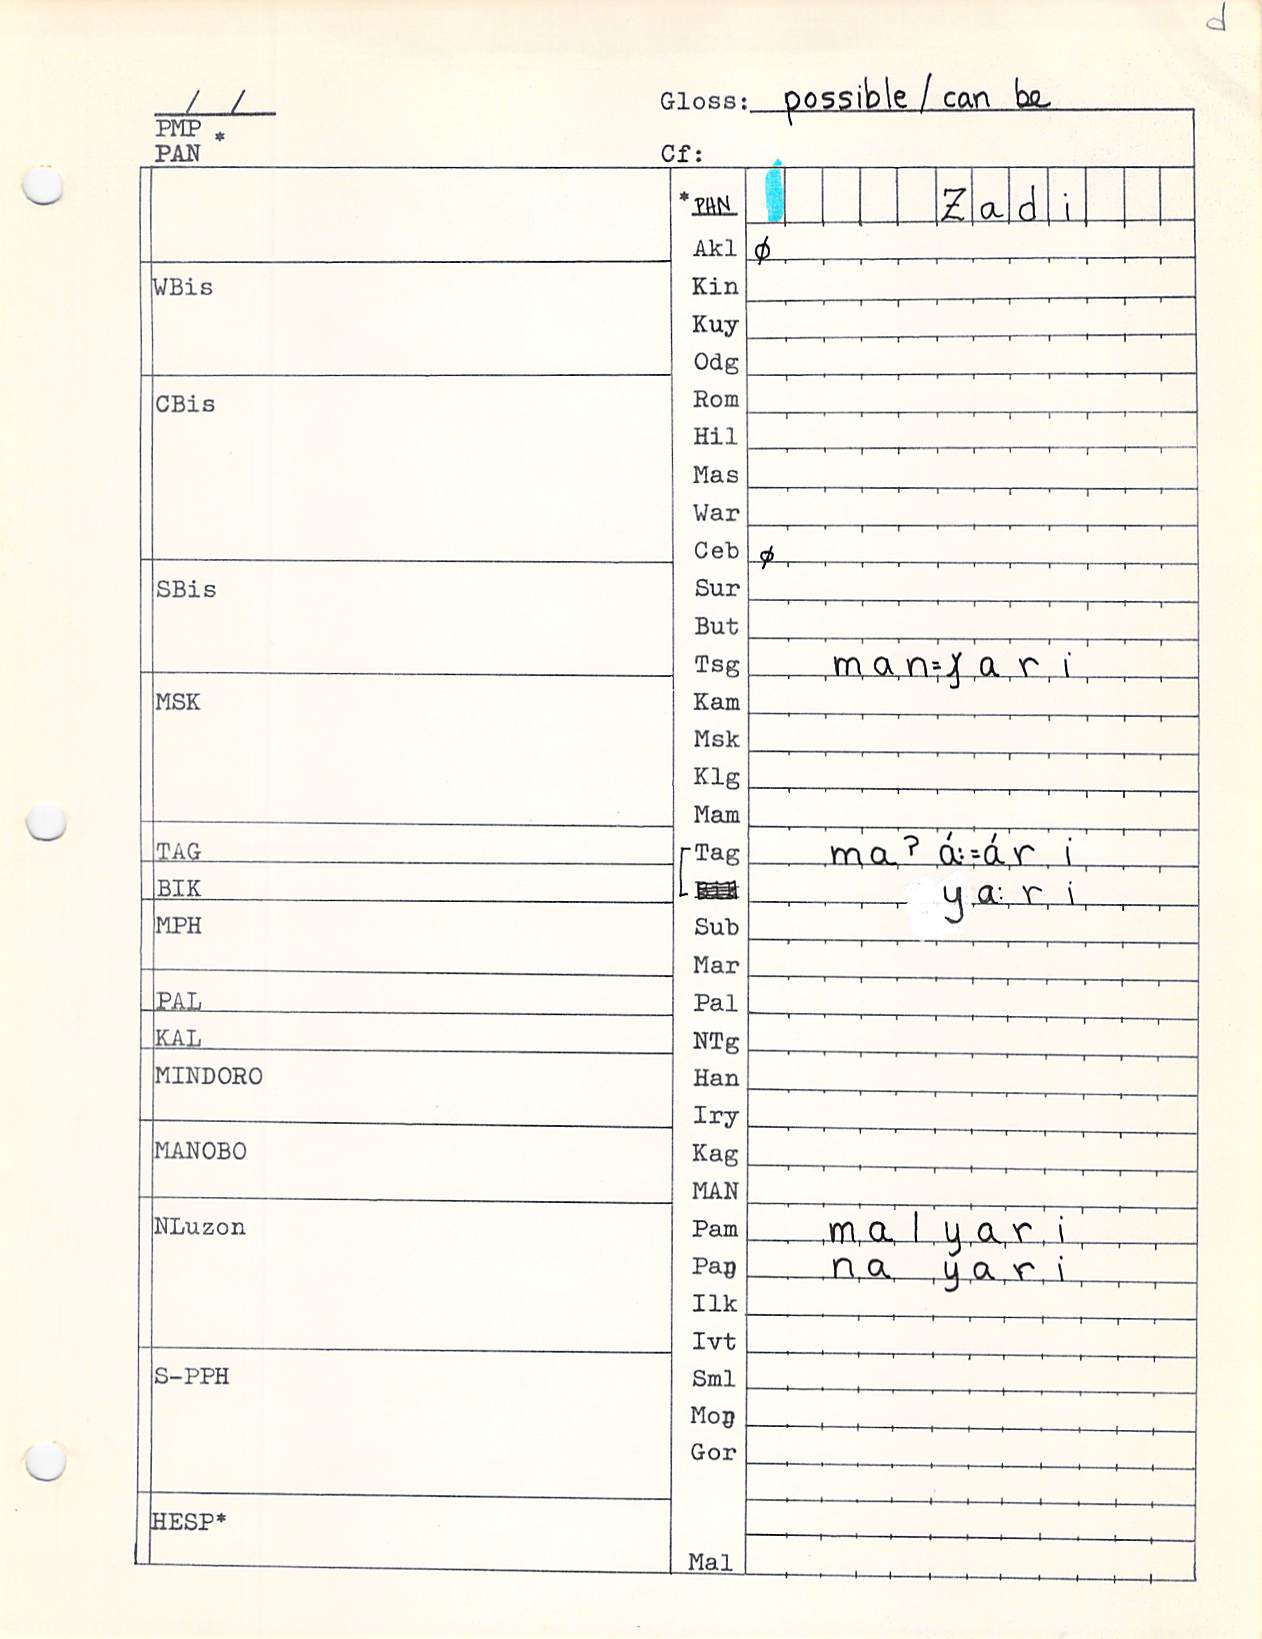 d
/ /
Gloss: possible / can be
PMP *
PAN
Cf:
*PHN Zadi
Akl ø
WBis
Kin
Kuy
Odg
CBis
Rom
Hil
Mas
War
Ceb ø
SBis
Sur
But
Tsg man=yari
MSK
Kam
Msk
Klg
Mam
TAG
Tag maʔ á:=ár i
BIK
ya:ri
MPH
Sub
Mar
PAL
Pal
KAL
NTg
MINDORO
Han
Iry
MANOBO
Kag
MAN
NLuzon
Pam malyari
Paŋ na yari
Ilk
Ivt
S-PPH
Sml
Moŋ
Gor
HESP*
Mal